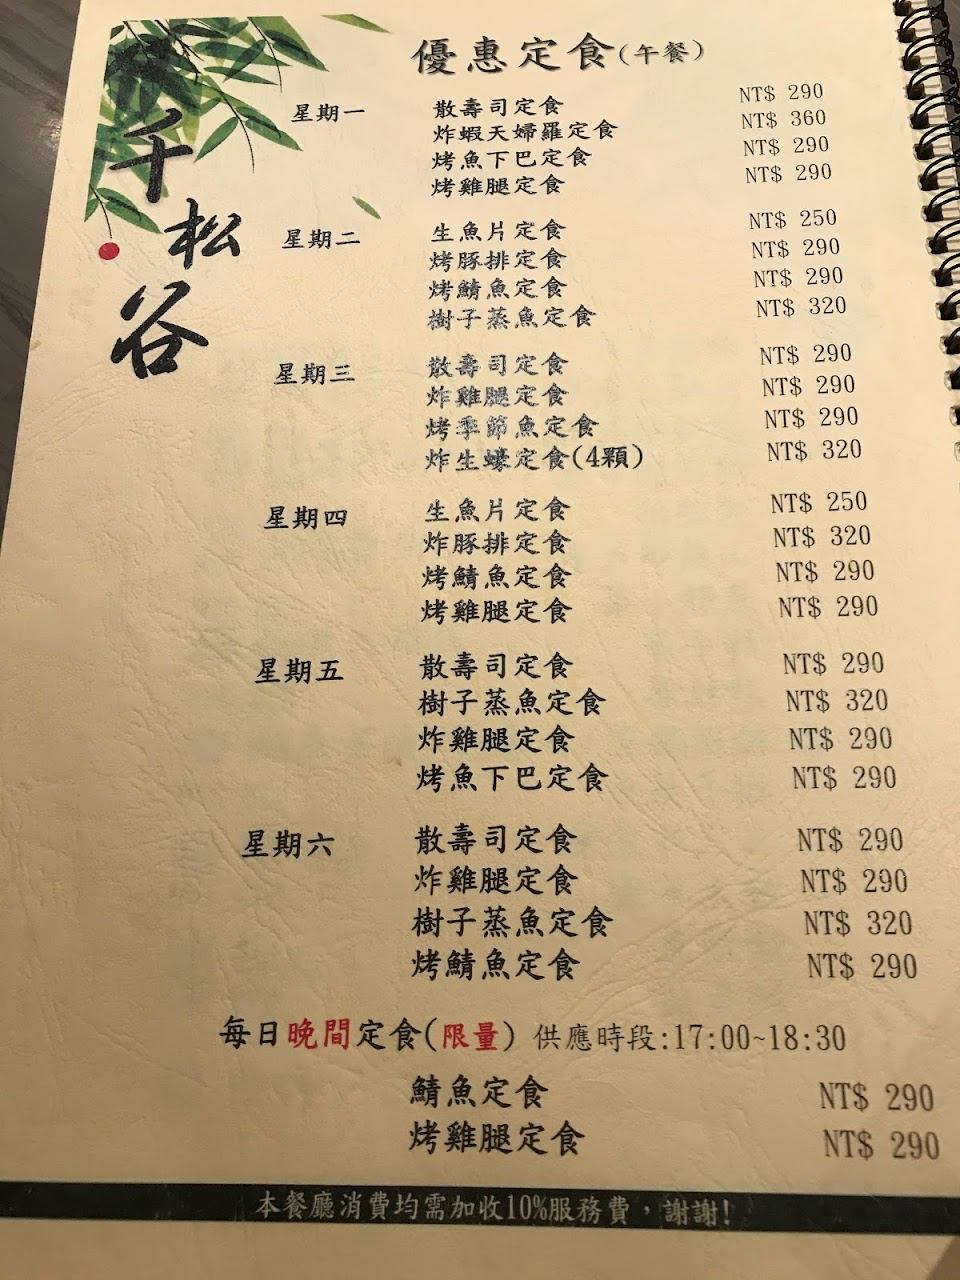 千松谷
優惠定食(午餐)
星期一 散壽司定食 NT$ 290
炸蝦天婦羅定食 NT$ 360
烤魚下巴定食 NT$ 290
烤雞腿定食 NT$ 290
星期二 生魚片定食 NT$ 250
烤豚排定食 NT$ 290
烤鯖魚定食 NT$ 290
樹子蒸魚定食 NT$ 320
星期三 散壽司定食 NT$ 290
炸雞腿定食 NT$ 290
烤季節魚定食 NT$ 290
炸生蠔定食(4顆) NT$ 320
星期四 生魚片定食 NT$ 250
炸豚排定食 NT$ 320
烤鯖魚定食 NT$ 290
烤雞腿定食 NT$ 290
星期五 散壽司定食 NT$ 290
樹子蒸魚定食 NT$ 320
炸雞腿定食 NT$ 290
烤魚下巴定食 NT$ 290
星期六 散壽司定食 NT$ 290
炸雞腿定食 NT$ 290
樹子蒸魚定食 NT$ 320
烤鯖魚定食 NT$ 290
每日晚間定食(限量) 供應時段:17:00~18:30
鯖魚定食 NT$ 290
烤雞腿定食 NT$ 290
本餐廳消費均需加收10%服務費，謝謝!